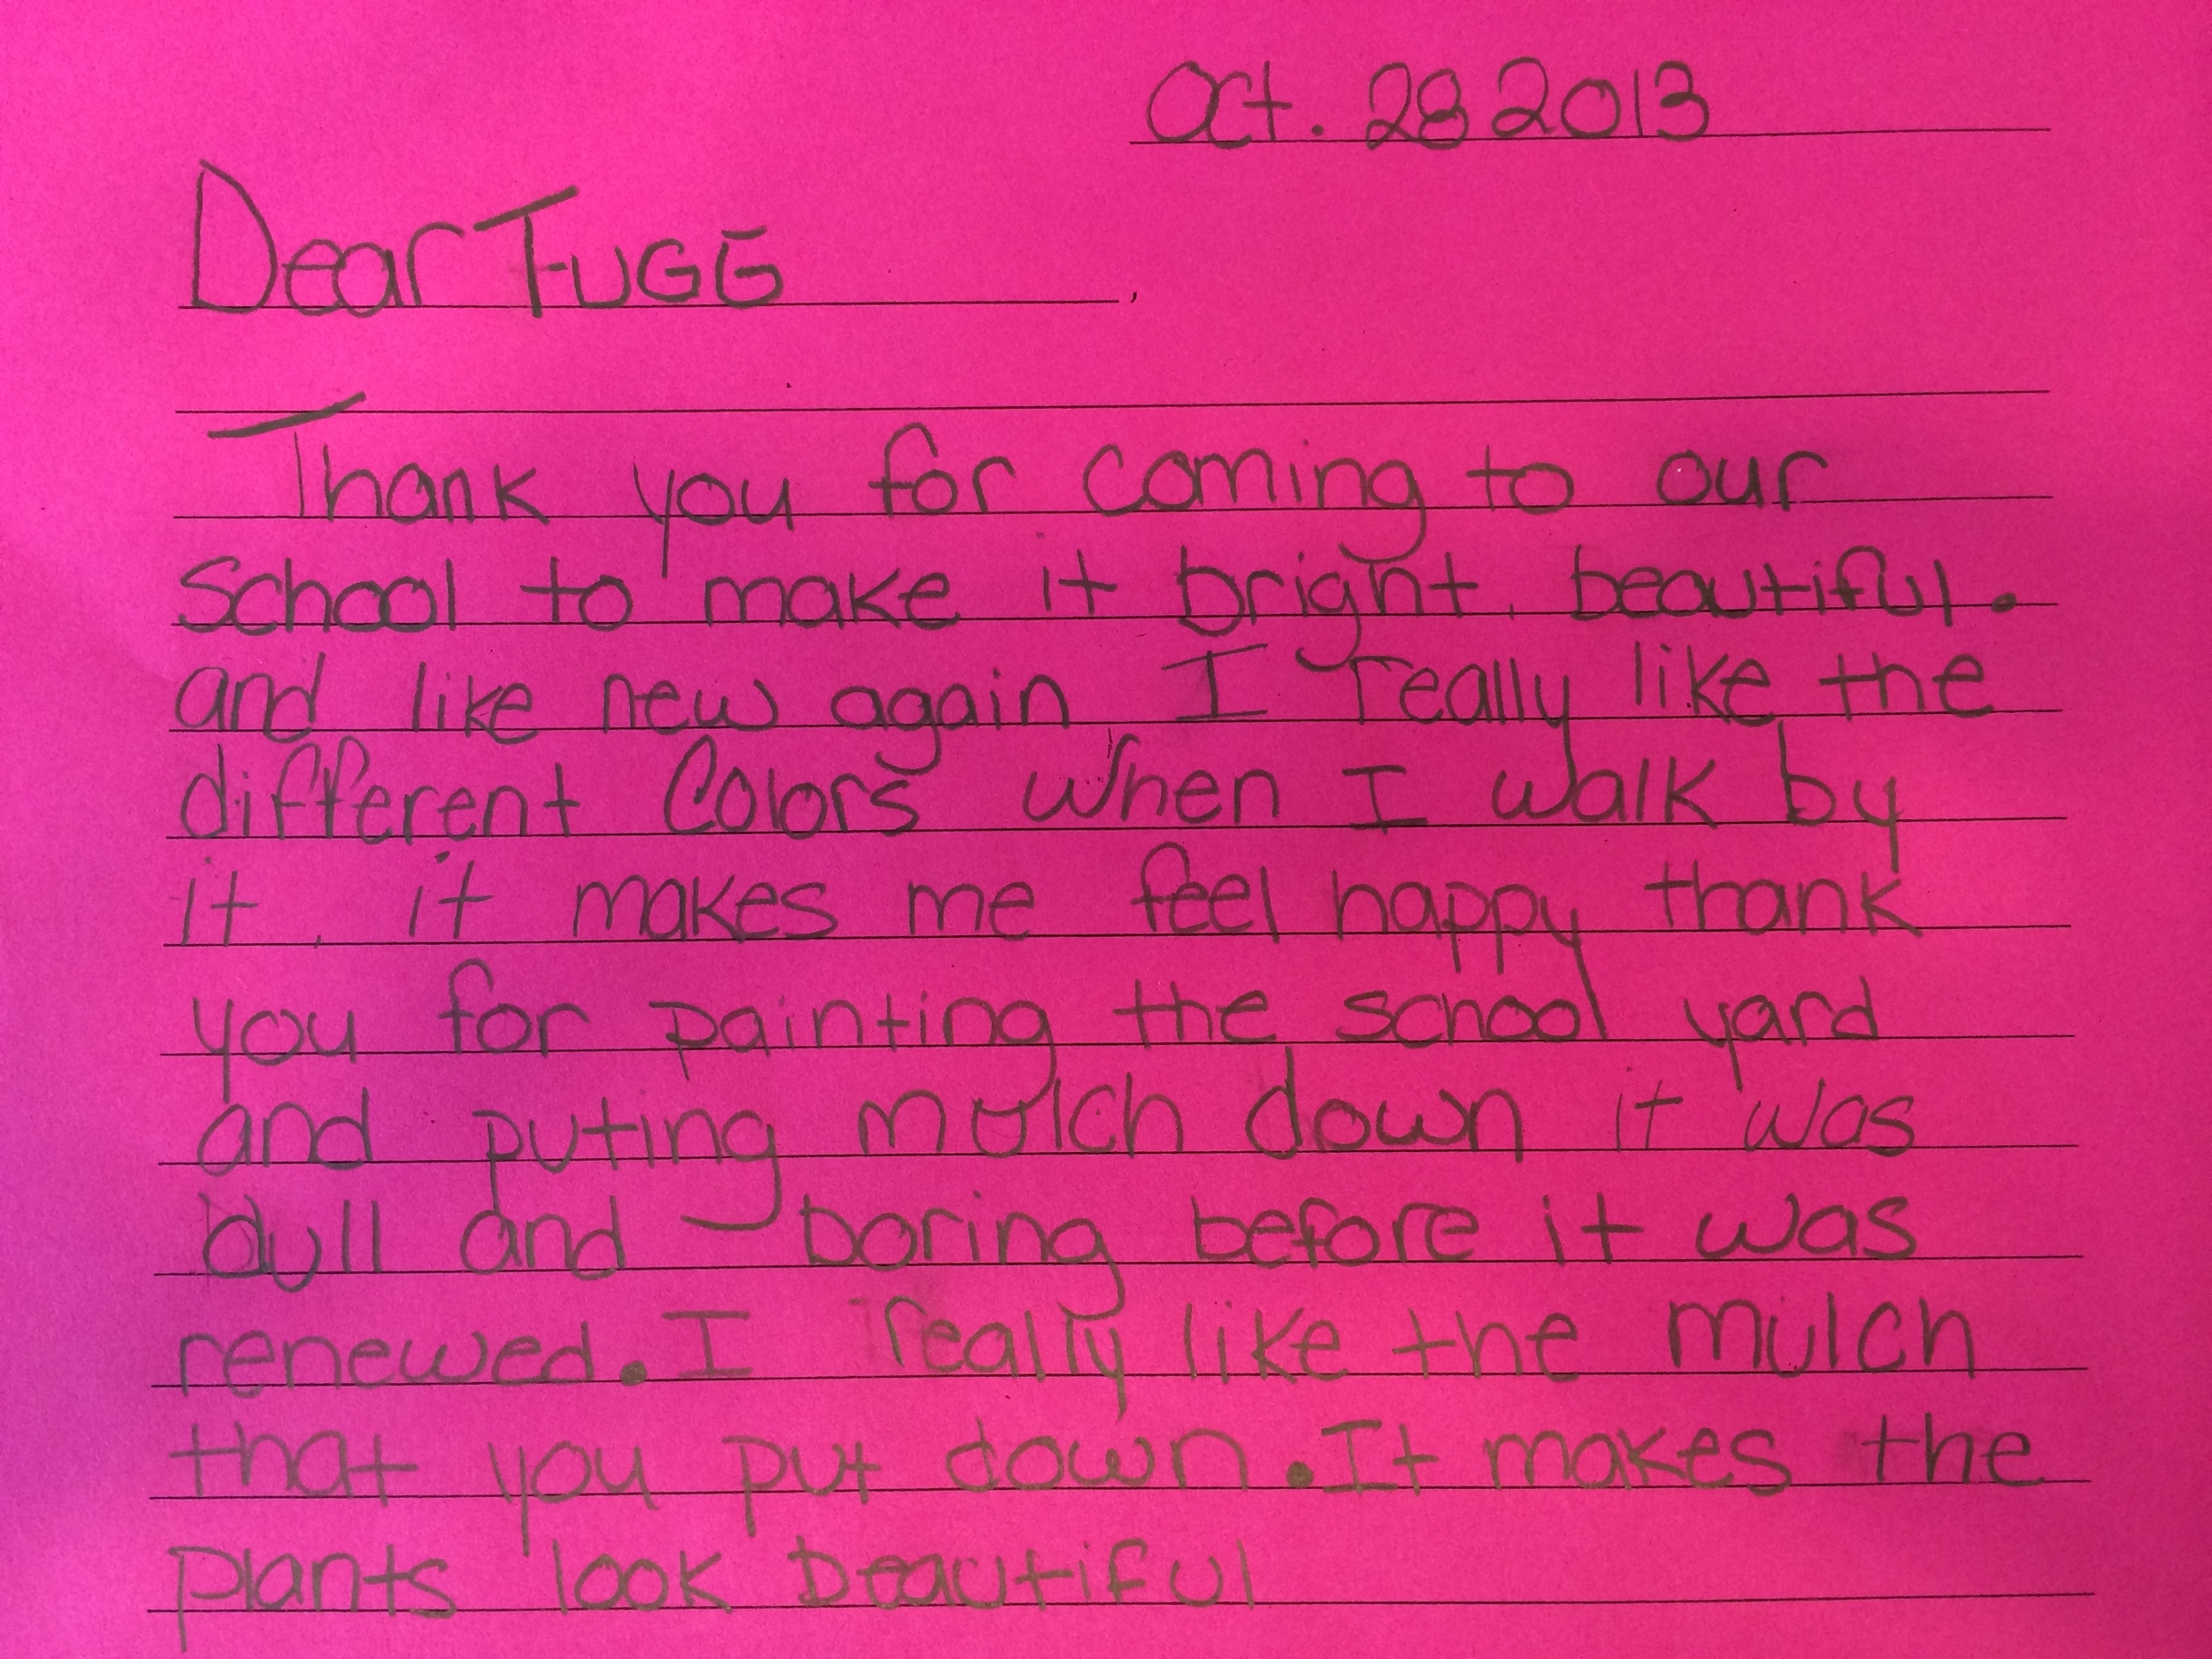 Oct. 28 2013
Dear FUGE,
Thank you for coming to our
School to make it bright, beautiful.
and like new again I really like the
different Colors when I walk by
it, it makes me feel happy thank
you for painting the school yard
and puting mulch down it was
dull and boring before it was
renewed. I really like the mulch
that you put down. It makes the
plants look beautiful